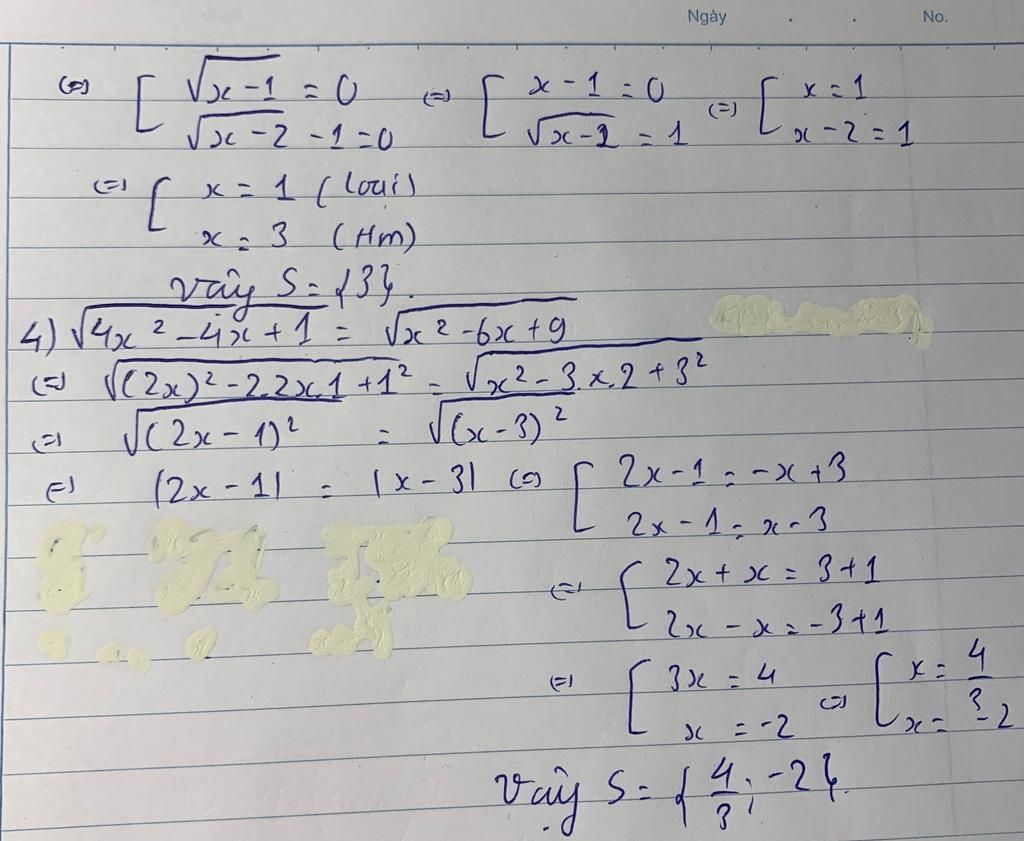 Ngày . . No.
(=) [ √(x-1) = 0 (=) [ x-1 = 0 (=) [ x = 1
√(x-2) -1=0 √(x-2) = 1 x-2 = 1
(=) [ x = 1 (loại)
x = 3 (t/m)
Vậy S = {3}.
4) √(4x² -4x+1) = √(x²-6x+9)
(=) √((2x)²-2.2x.1+1²) = √(x²-3.x.2+3²)
(=) √((2x-1)²) = √((x-3)²)
(=) |2x-1| = |x-3| (=) [ 2x-1 = -x+3
2x-1 = x-3
(=) [ 2x+x = 3+1
2x-x = -3+1
(=) [ 3x = 4 (=) [ x = 4/3
x = -2 x = -2
Vậy S = {4/3; -2}.